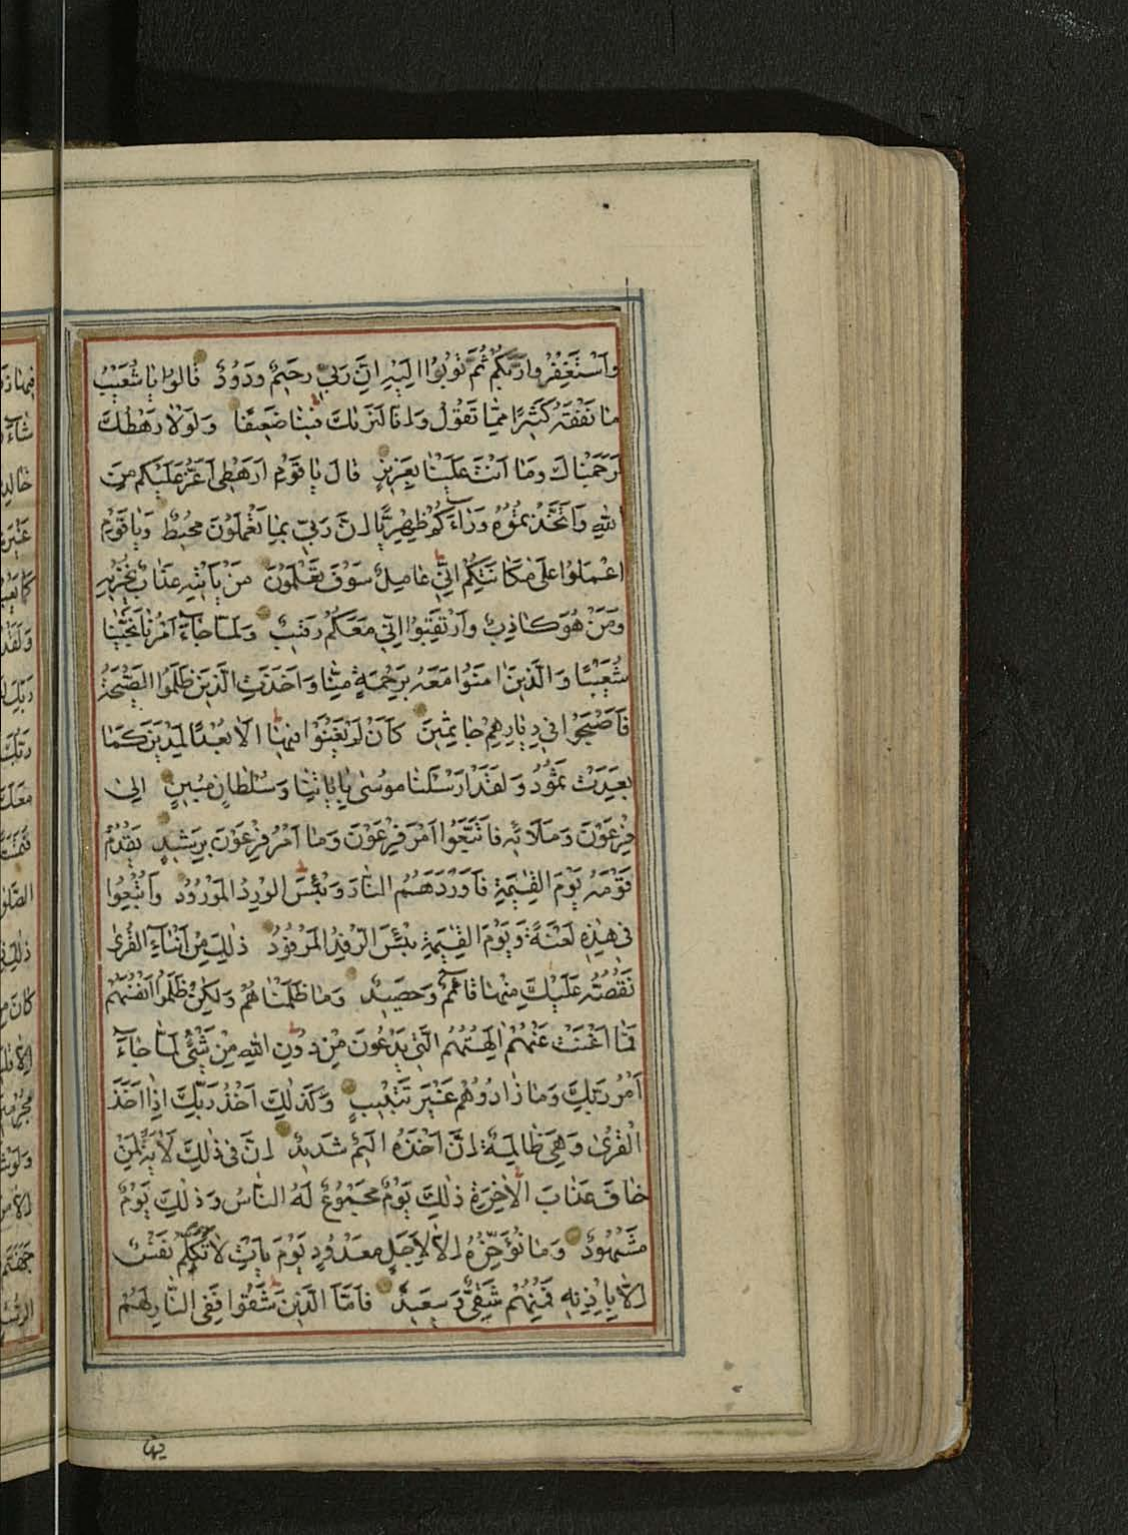 وَاسْتَغْفِرُوا رَبَّكُمْ ثُمَّ تُوبُوا اِلَيْهِ اِنَّ رَبّي رَحيمٌ وَدُودٌ قَالُوا يَا شُعَيْبُ
مَا نَفْقَهُ كَثيرًا مِمَّا تَقُولُ وَاِنَّا لَنَرٰيكَ فينَا ضَعيفًا وَلَوْلَا رَهْطُكَ
لَرَجَمْنَاكَ وَمَا اَنْتَ عَلَيْنَا بِعَزيزٍ قَالَ يَا قَوْمِ اَرَهْطي اَعَزُّ عَلَيْكُمْ مِنَ
اللهِ وَاتَّخَذْتُمُوهُ وَرَاءَكُمْ ظِهْرِيًّا اِنَّ رَبّي بِمَا تَعْمَلُونَ مُحيطٌ وَيَا قَوْمِ
اعْمَلُوا عَلٰى مَكَانَتِكُمْ اِنّي عَامِلٌ سَوْفَ تَعْلَمُونَ مَنْ يَاْتيهِ عَذَابٌ يُخْزيهِ
وَمَنْ هُوَ كَاذِبٌ وَارْتَقِبُوا اِنّي مَعَكُمْ رَقيبٌ وَلَمَّا جَاءَ اَمْرُنَا نَجَّيْنَا
شُعَيْبًا وَالَّذينَ اٰمَنُوا مَعَهُ بِرَحْمَةٍ مِنَّا وَاَخَذَتِ الَّذينَ ظَلَمُوا الصَّيْحَةُ
فَاَصْبَحُوا في دِيَارِهِمْ جَاثِمينَ كَاَنْ لَمْ يَغْنَوْا فيهَا اَلَا بُعْدًا لِمَدْيَنَ كَمَا
بَعِدَتْ ثَمُودُ وَلَقَدْ اَرْسَلْنَا مُوسٰى بِاٰيَاتِنَا وَسُلْطَانٍ مُبينٍ اِلٰى
فِرْعَوْنَ وَمَلَائِهِ فَاتَّبَعُوا اَمْرَ فِرْعَوْنَ وَمَا اَمْرُ فِرْعَوْنَ بِرَشيدٍ يَقْدُمُ
قَوْمَهُ يَوْمَ الْقِيٰمَةِ فَاَوْرَدَهُمُ النَّارَ وَبِئْسَ الْوِرْدُ الْمَوْرُودُ وَاُتْبِعُوا
في هٰذِهِ لَعْنَةً وَيَوْمَ الْقِيٰمَةِ بِئْسَ الرِّفْدُ الْمَرْفُودُ ذٰلِكَ مِنْ اَنْبَاءِ الْقُرٰى
نَقُصُّهُ عَلَيْكَ مِنْهَا قَائِمٌ وَحَصيدٌ وَمَا ظَلَمْنَاهُمْ وَلٰكِنْ ظَلَمُوا اَنْفُسَهُمْ
فَمَا اَغْنَتْ عَنْهُمْ اٰلِهَتُهُمُ الَّتي يَدْعُونَ مِنْ دُونِ اللهِ مِنْ شَيْءٍ لَمَّا جَاءَ
اَمْرُ رَبِّكَ وَمَا زَادُوهُمْ غَيْرَ تَتْبيبٍ وَكَذٰلِكَ اَخْذُ رَبِّكَ اِذَا اَخَذَ
الْقُرٰى وَهِيَ ظَالِمَةٌ اِنَّ اَخْذَهُ اَليمٌ شَديدٌ اِنَّ في ذٰلِكَ لَاٰيَةً لِمَنْ
خَافَ عَذَابَ الْاٰخِرَةِ ذٰلِكَ يَوْمٌ مَجْمُوعٌ لَهُ النَّاسُ وَذٰلِكَ يَوْمٌ
مَشْهُودٌ وَمَا نُؤَخِّرُهُ اِلَّا لِاَجَلٍ مَعْدُودٍ يَوْمَ يَاْتِ لَا تَكَلَّمُ نَفْسٌ
اِلَّا بِاِذْنِهِ فَمِنْهُمْ شَقِيٌّ وَسَعيدٌ فَاَمَّا الَّذينَ شَقُوا فَفِي النَّارِ لَهُمْ
فيها